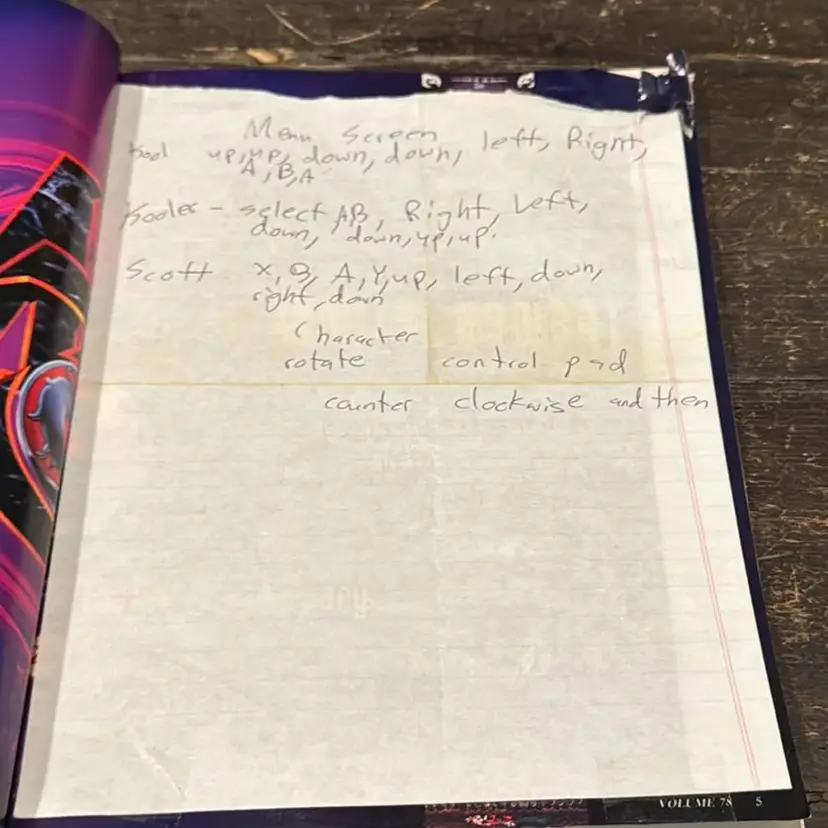 Menu Screen
Kool up, up, down, down, left, Right,
A, B, A
Kooler - select AB, Right, Left,
down, down, up, up.
Scott X, B, A, Y, up, left, down,
right, down
Character
rotate control pad
counter clockwise and then
VOLUME 78 5